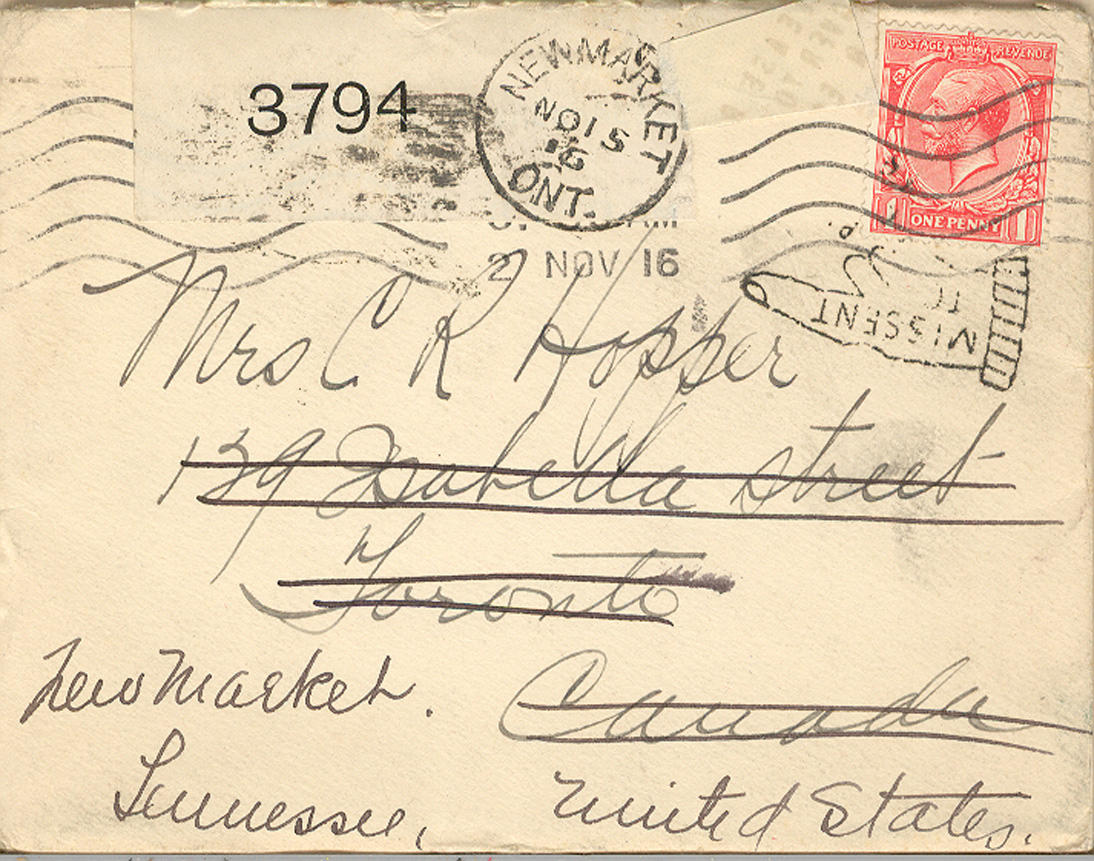 3794
NEWMARKET
NO 15
16
ONT.
AM
2 NOV 16
POSTAGE REVENUE
1 ONE PENNY 1
MISSENT
TO
Mrs C R Hopper
139 Isabella Street
Toronto
Canada
New Market.
Tennessee,
United States.